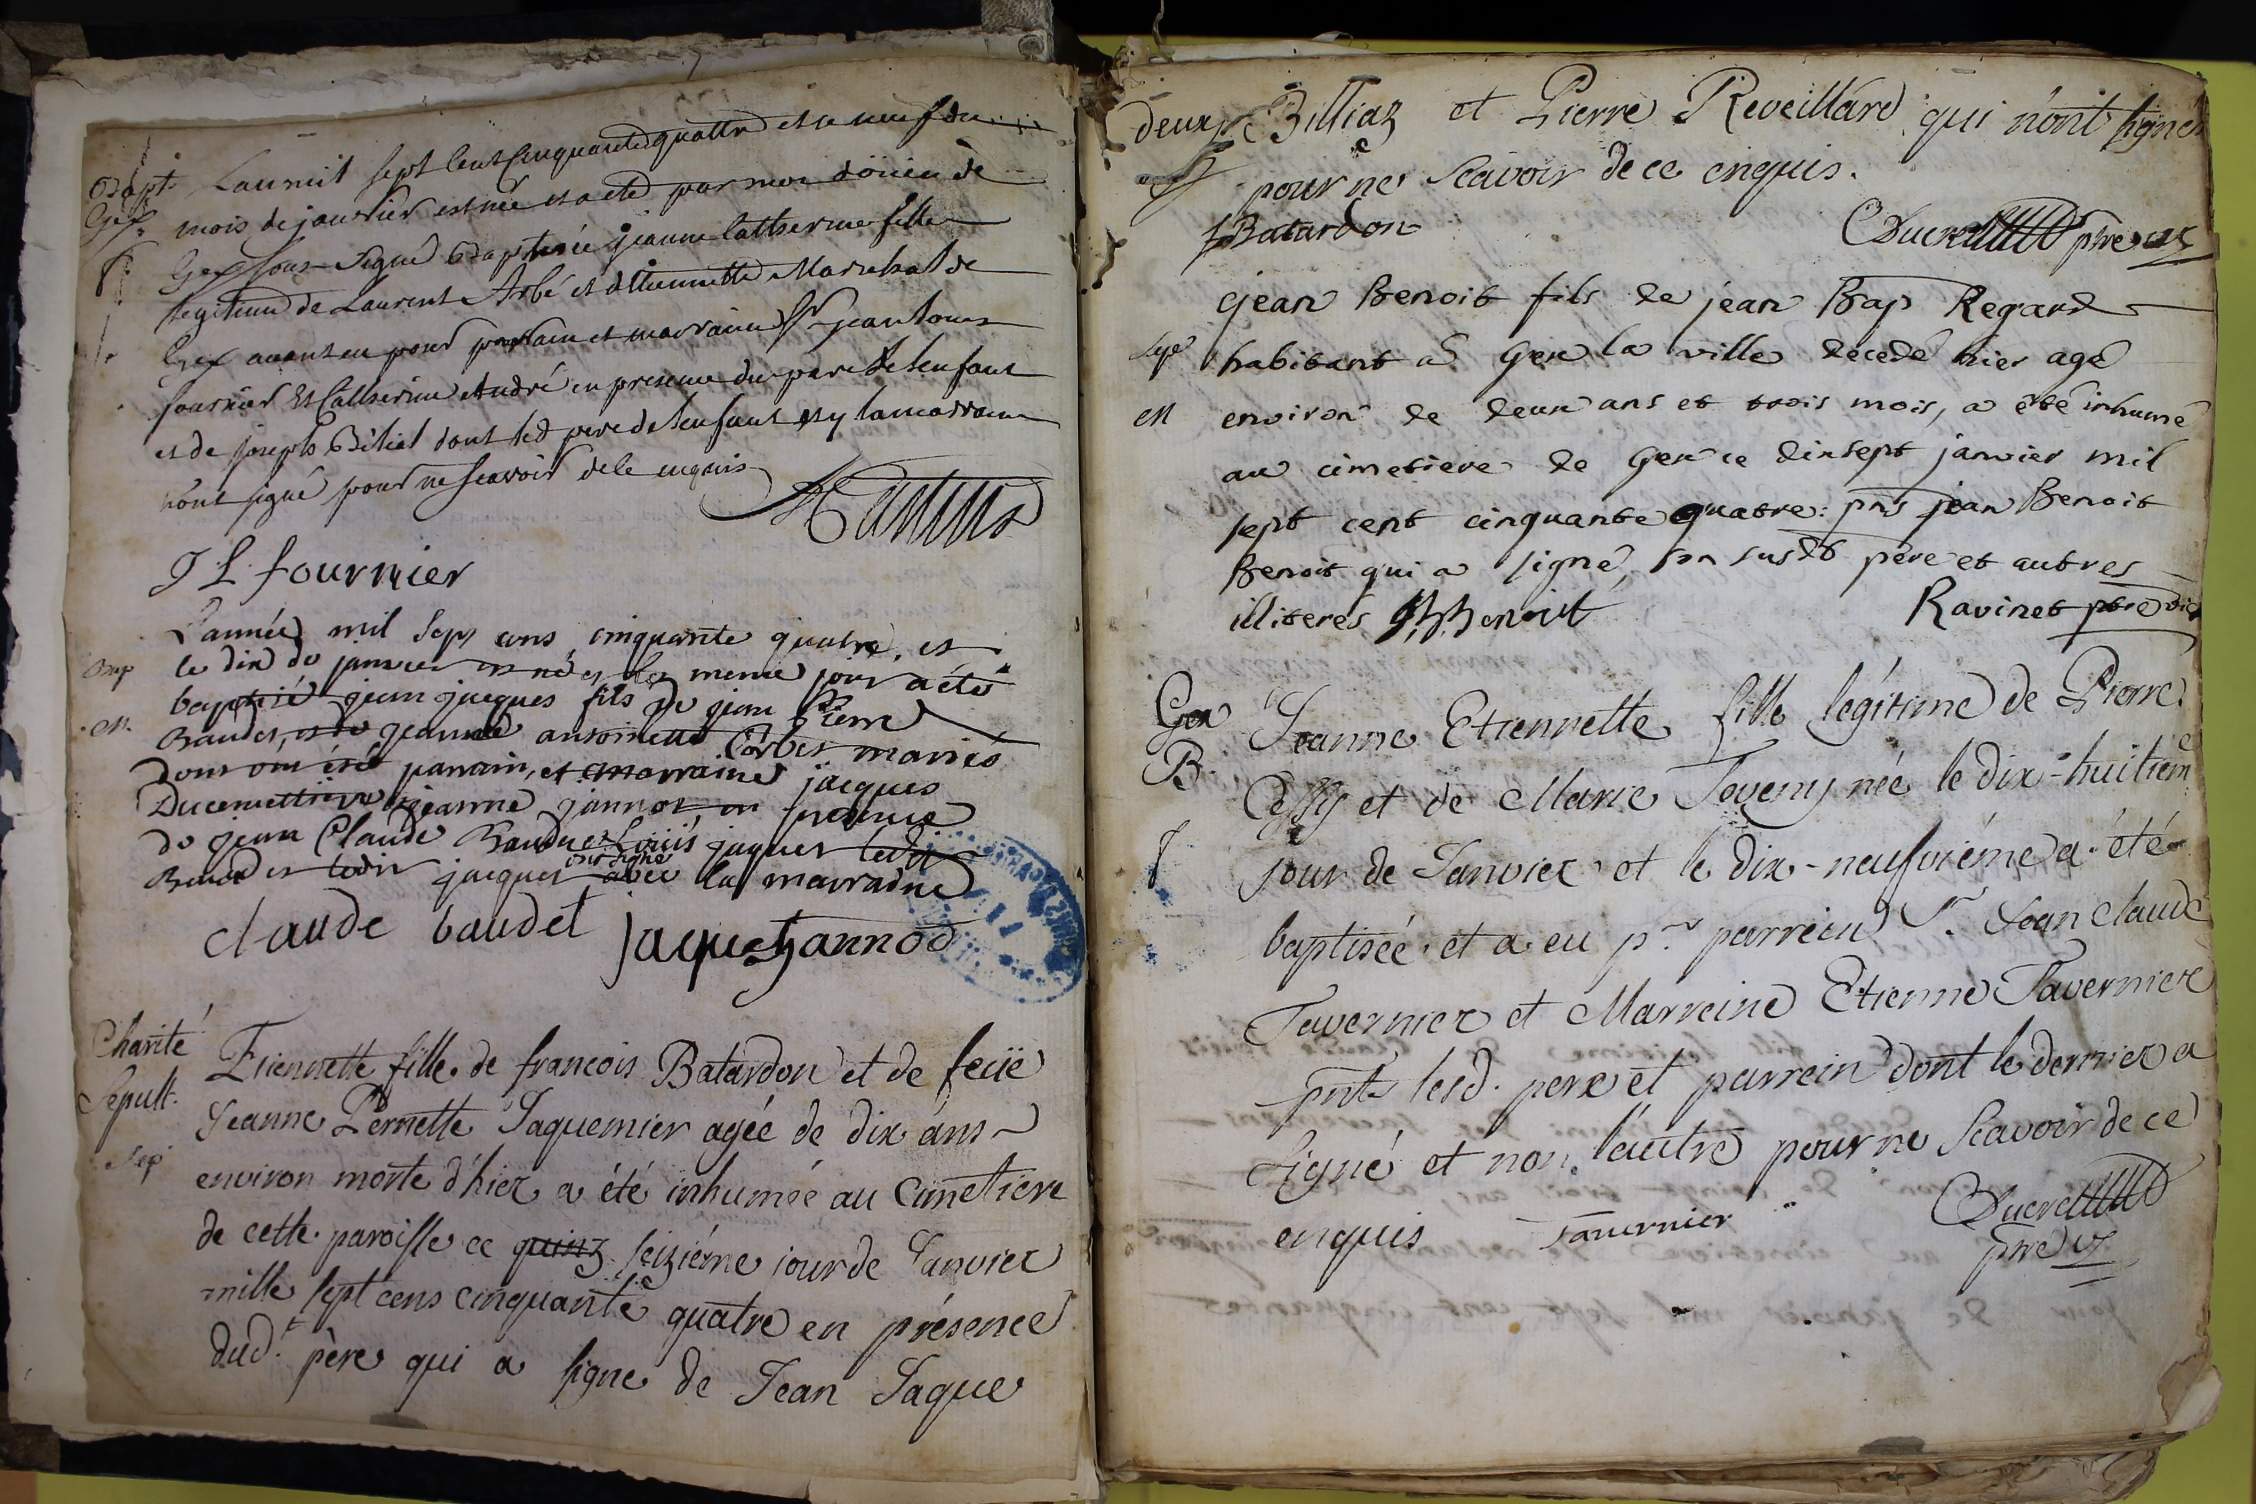 Bapt.
Gex
Lan mil sept cent cinquante quattre et le neuf du
mois de janvier est née et a eté par moi doïien de
Gex sous-signé Baptisée jeanne Catherine fille
legitime de Laurent Arbé et d'Etiennette Marechal de
Gex aiant eu pour parrain et marraine Sr jean Louis
fournier et Catherine André en presence du pere de lenfant
et de joseph Béliat dont led pere de lenfant et la marraine
n'ont signé pour ne scavoir de ce enquis
J L fournier
Bap
M.
L'année mil sept cens cinquante quatre, et
le dix de janvier est né et le meme jour a été
baptisé jean jacques fils de jean Pierre
Baudet, et de jeanne antoinette mariés
dont ont été parrain, et marraine jacques
jeanne jannot en presence
de jean Claude Baudet Louis jaques ledit
Baudet ledit jacques ont signé avec la marraine
claude baudet jaques jannod
Charité
Sepult.
Sep
Etiennette fille de francois Batardon et de feüe
Jeanne Pernette Jaquemier agéé de dix ans
environ morte d'hier a été inhumée au Cimetiere
de cette paroisse ce quinz seiziéme jour de Janvier
mille sept cens cinquante quatre en présence
dud. père qui a signe de Jean Jaque
deux Billiaz et Pierre Reveillard qui n'ont signé
pour ne Scavoir de ce enquis.
f Batardon
Ducret ptre vic
Sep
M
jean Benoit fils de jean Bap Regard
habitant a Gex la ville decedé hier agé
environ de deux ans et trois mois, a été inhumé
au cimetiere de Gex ce dix sept janvier mil
sept cent cinquante quatre: pns jean Benoit
Benoit qui a signé, son susdt père et autres
illiterés Benoit
Ravinet ptre vic
Gex
B.
Jeanne Etiennette fille légitime de Pierre
Cessy et de Marie Taverny née le dix-huitiéme
jour de Janvier et le dix-neufviéme a été
baptiséé et a eu pr. parrein Sr. Jean Claude
Tavernier et Marreine Etienne Tavernier
pnts lesd. pere et parrein dont le dernier a
signé et non l'autre pour ne Scavoir de ce
enquis Tavernier
Ducret
ptre vic